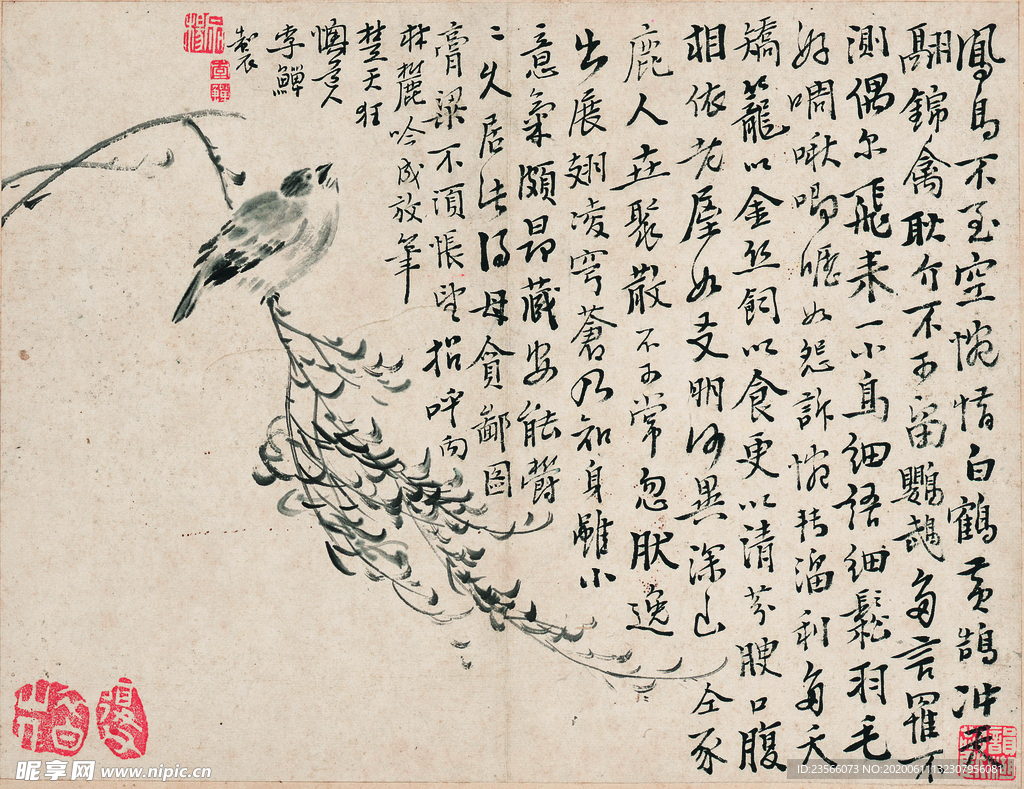 鳳鳥不至空惋惜白鶴黃鵠冲天
翮錦禽耿介不可留鸚鵡多言罹不
測偶尔飛来一小鳥細語細鬆羽毛
好啁啾唧嚦如怨訴惋轉溜利多天
矯籠以金丝飼以食更以清芬腴口腹
相依老屋如友朋何異深山仝豕
鹿人在聚散不可常忽肰逸
出展翅凌穹蒼乃知身雖小
意氣頗昂藏安能欝
〻久居此得毋貪鄙圖
膏粱不須悵望招呼向
林麓吟成放筆
楚天狂
懊道人
李鱓
製
昵享网 www.nipic.cn
ID:23566073 NO:20200611132307956081